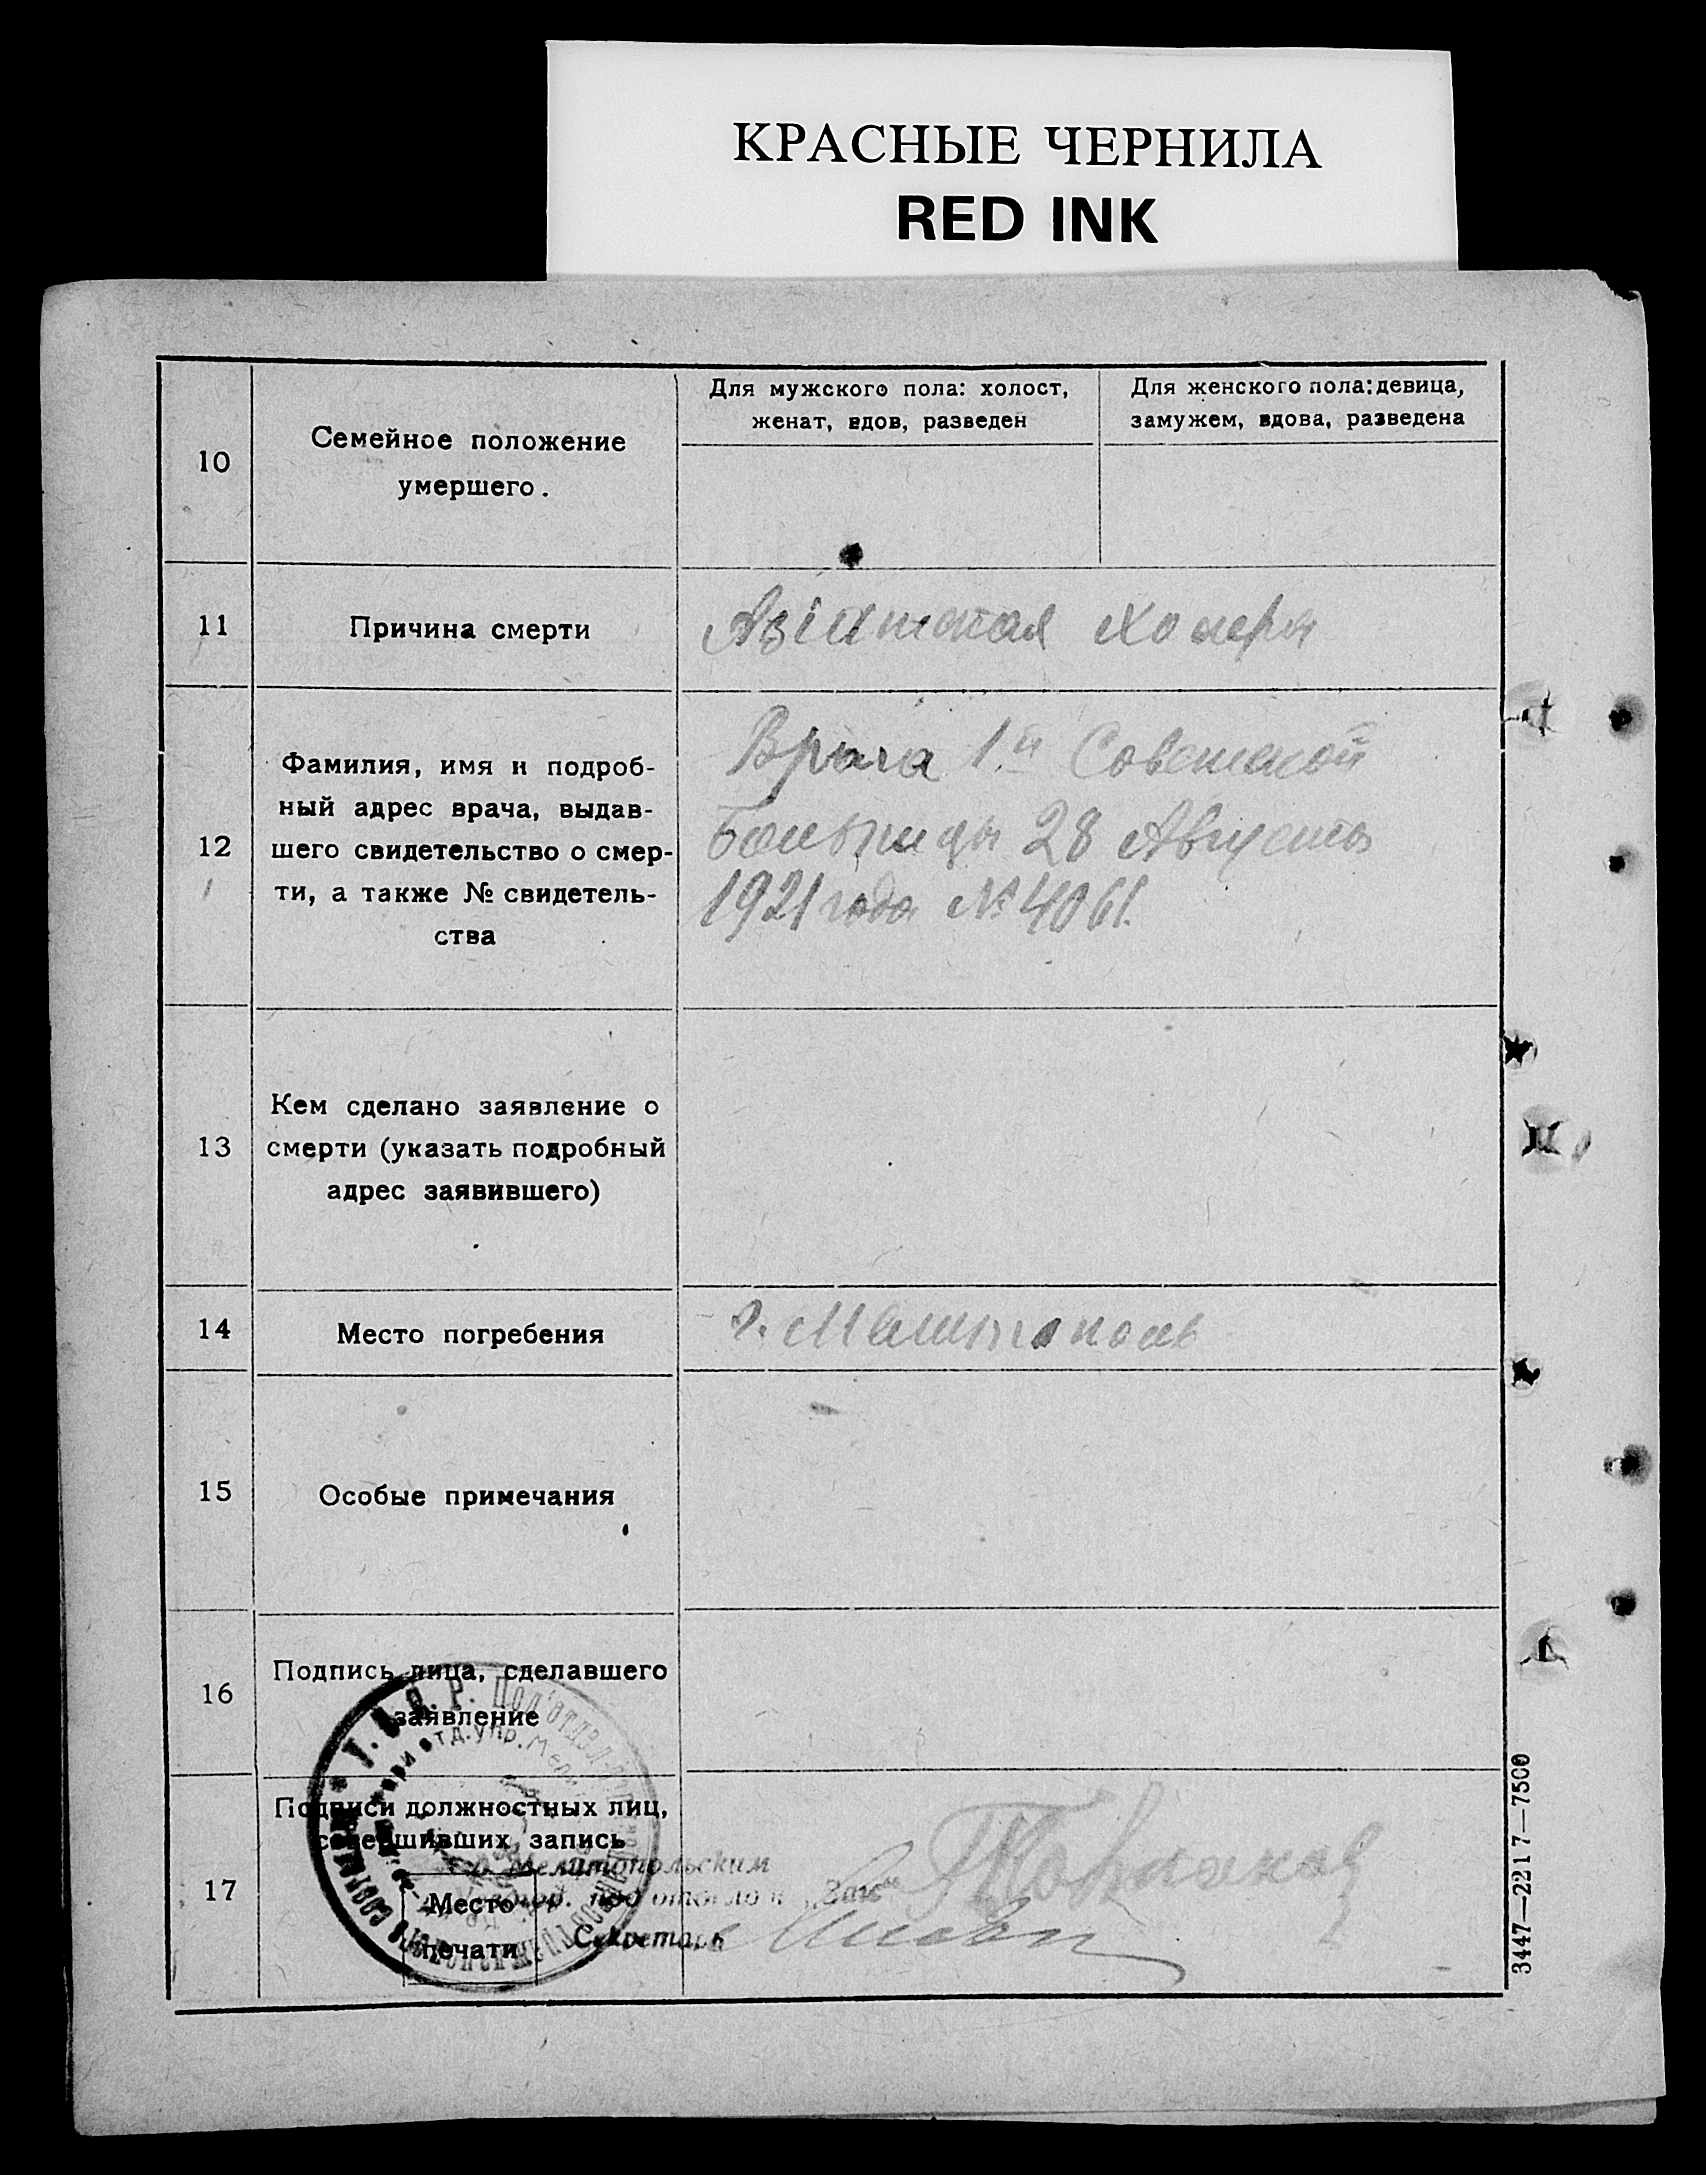 КРАСНЫЕ ЧЕРНИЛА
RED INK
10
Семейное положение
умершего.
Для мужского пола: холост,
женат, вдов, разведен
Для женского пола: девица,
замужем, вдова, разведена
11
Причина смерти
Азіатская холера
12
Фамилия, имя и подроб-
ный адрес врача, выдав-
шего свидетельство о смер-
ти, а также № свидетель-
ства
Врача 1й Советской
Больницы 28 Августа
1921 года № 4061.
13
Кем сделано заявление о
смерти (указать подробный
адрес заявившего)
14
Место погребения
г. Мелитополь
15
Особые примечания
16
Подпись лица, сделавшего
заявление
17
Подписи должностных лиц,
совершивших запись
Мелитопольским
под'отделом „Загс"
Место
печати
Секретарь
3447—2217—7500